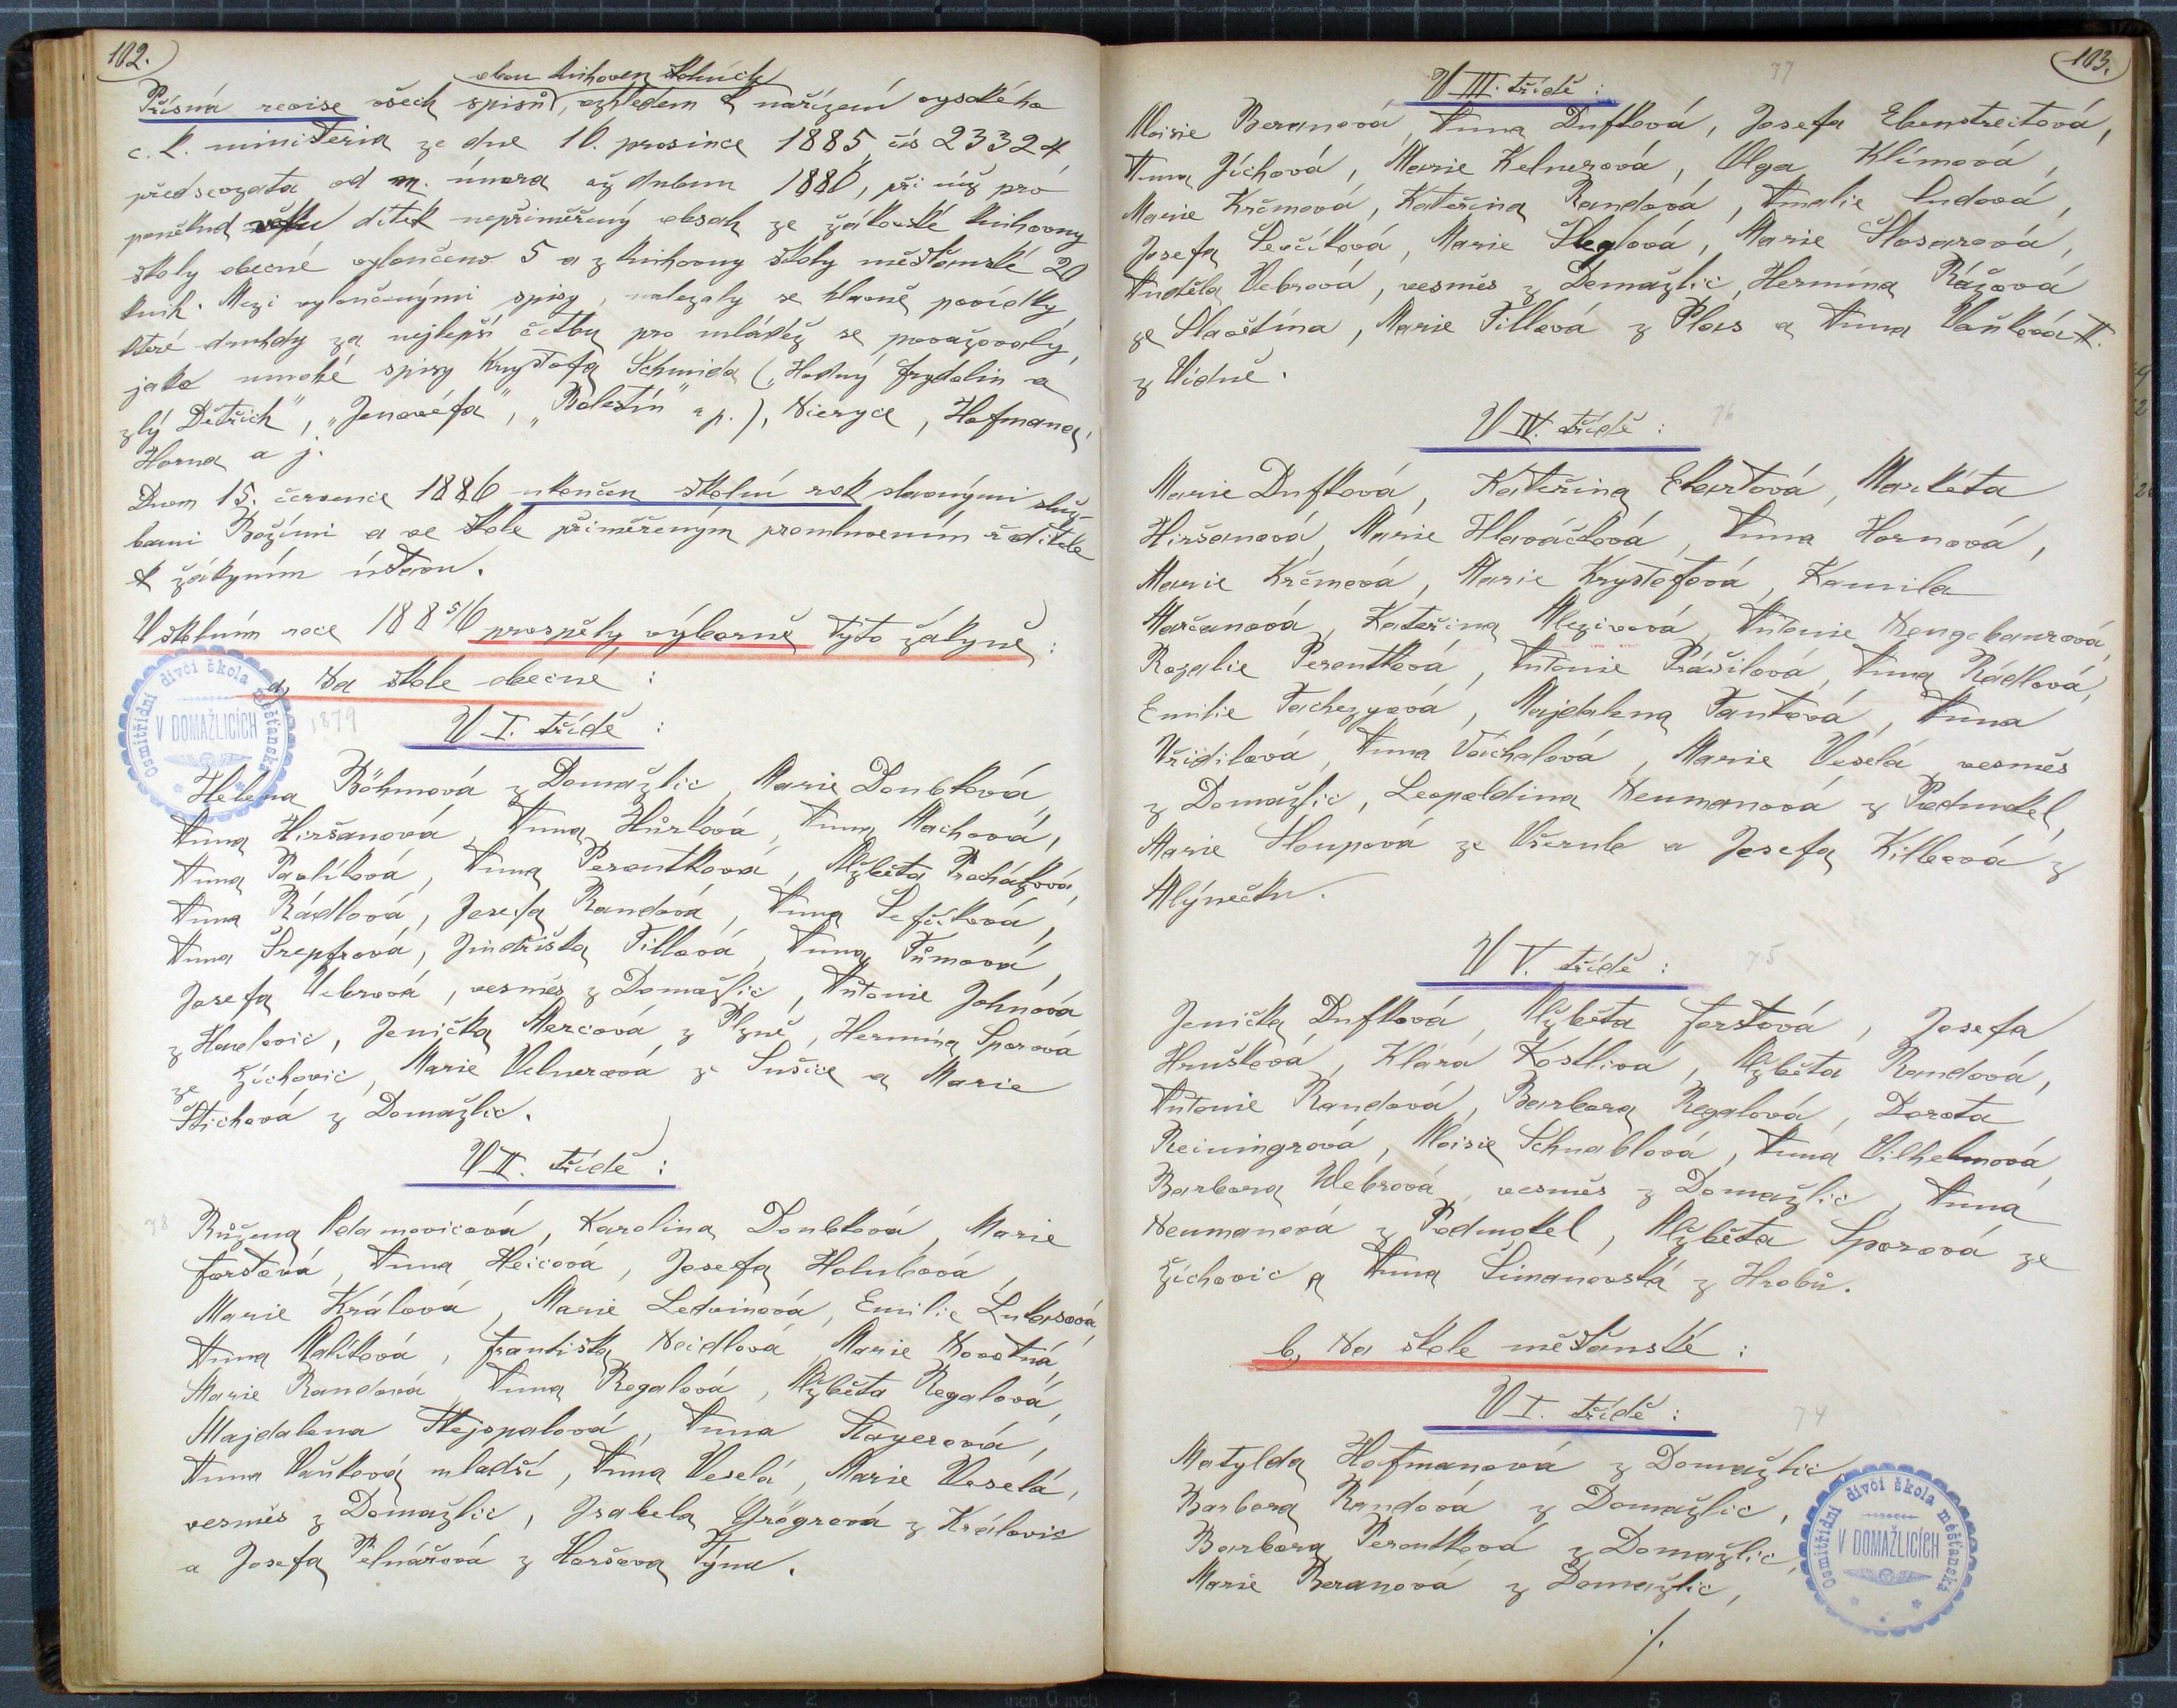 102.
obou knihoven školních
Přísná revise všech spisů, vzhledem k nařízení vysokého
c. k. ministeria ze dne 16. prosince 1885 čís 23324
předsevzata od m. února až dubna 1886, při níž pro
poněkud věku dítek nepřiměřený obsah ze žákovské knihovny
školy obecné vyloučeno 5 a z knihovny školy měšťanské 20
knih. Mezi vyloučenými spisy, nalezaly se hlavně povídky,
které druhdy za nejlepší četbu pro mládež se považovaly,
jako mnohé spisy Kryštofa Schmida („Hodný Frydolin a
zlý Dětřich", „Jenovéfa", „Bolestín" a p.), Nieryce, Hofmana,
Horna a j.
Dnem 15. července 1886 ukončen školní rok slavnými služ-
bami Božími a ve škole přiměřeným promluvením ředitele
k žákyním ústavu.
V školním roce 1885/6 prospěly výborně tyto žákyně:
a, Na škole obecné:
Osmitřídní dívčí škola měšťanská
V DOMAŽLICÍCH
1879
V I. třídě:
Helena Böhmová z Domažlic, Marie Doubková,
Anna Hiršanová, Anna Hůrková, Anna Machová,
Anna Pavlíková, Anna Peroutková, Alžběta Procházková,
Anna Rádlová, Josefa Randová, Anna Šefčíková,
Anna Šrepfrová, Jindřiška Tillová, Anna Tůmová,
Josefa Vebrová, vesměs z Domažlic, Antonie Johnová
z Havlovic, Jenička Mercová z Plzně, Hermína Sporová
ze Žichovic, Marie Velnerová ze Sušice a Marie
Štichová z Domažlic.
V II. třídě:
78
Růžena Adamovicová, Karolina Doubková, Marie
Forstová, Anna Héicová, Josefa Holubová,
Marie Králová, Marie Ledvinová, Emilie Lukasová,
Anna Malíková, Františka Neidlová, Marie Novotná,
Marie Randová, Anna Regalová, Alžběta Regalová,
Majdalena Stejspalová, Anna Stayerová,
Anna Vaňková mladší, Anna Veselá, Marie Veselá,
vesměs z Domažlic, Isabela Grögrová z Královic
a Josefa Pelnářová z Horšova Týna.
103.
V III. třídě:
77
Aloisie Beranová, Anna Dufková, Josefa Ebenstreitová,
Anna Jíchová, Marie Kelnerová, Olga Klímová,
Marie Krčmová, Kateřina Randová, Amalie Sudová,
Josefa Ševčíková, Marie Šteglová, Marie Šlosarová,
Anděla Vebrová, vesměs z Domažlic, Hermína Rážová
ze Slavětína, Marie Tillová z Plas a Anna Vaňková II.
z Vídně.
V IV. třídě:
76
Marie Dufková, Kateřina Ekartová, Markéta
Hiršanová, Marie Hlaváčková, Anna Hornová,
Marie Krčmová, Marie Kryštofová, Kamila
Marčanová, Kateřina Mlezivová, Antonie Neugebaurová,
Rozalie Peroutková, Antonie Prášilová, Anna Rádlová,
Emilie Tachezyová, Majdalena Tautová, Anna
Vřídilová, Anna Váchalová, Marie Veselá, vesměs
z Domažlic, Leopoldina Neumanová z Podmokel,
Marie Sloupová ze Všerub a Josefa Kilbová z
Mlýnečku.
V V. třídě:
75
Jenička Dufková, Alžběta Forstová, Josefa
Hrušková, Klára Kostlivá, Alžběta Randová,
Antonie Randová, Barbora Regalová, Dorota
Reiningrová, Aloisie Schnablová, Anna Vilhelmová,
Barbora Webrová, vesměs z Domažlic, Anna
Neumanová z Podmokel, Alžběta Sporová ze
Žichovic a Anna Šimanovská z Hrobů.
b, Na škole měšťanské:
V I. třídě:
74
Matylda Hofmanová z Domažlic,
Barbora Randová z Domažlic,
Barbora Peroutková z Domažlic,
Marie Beranová z Domažlic,
Osmitřídní dívčí škola měšťanská
V DOMAŽLICÍCH
./.